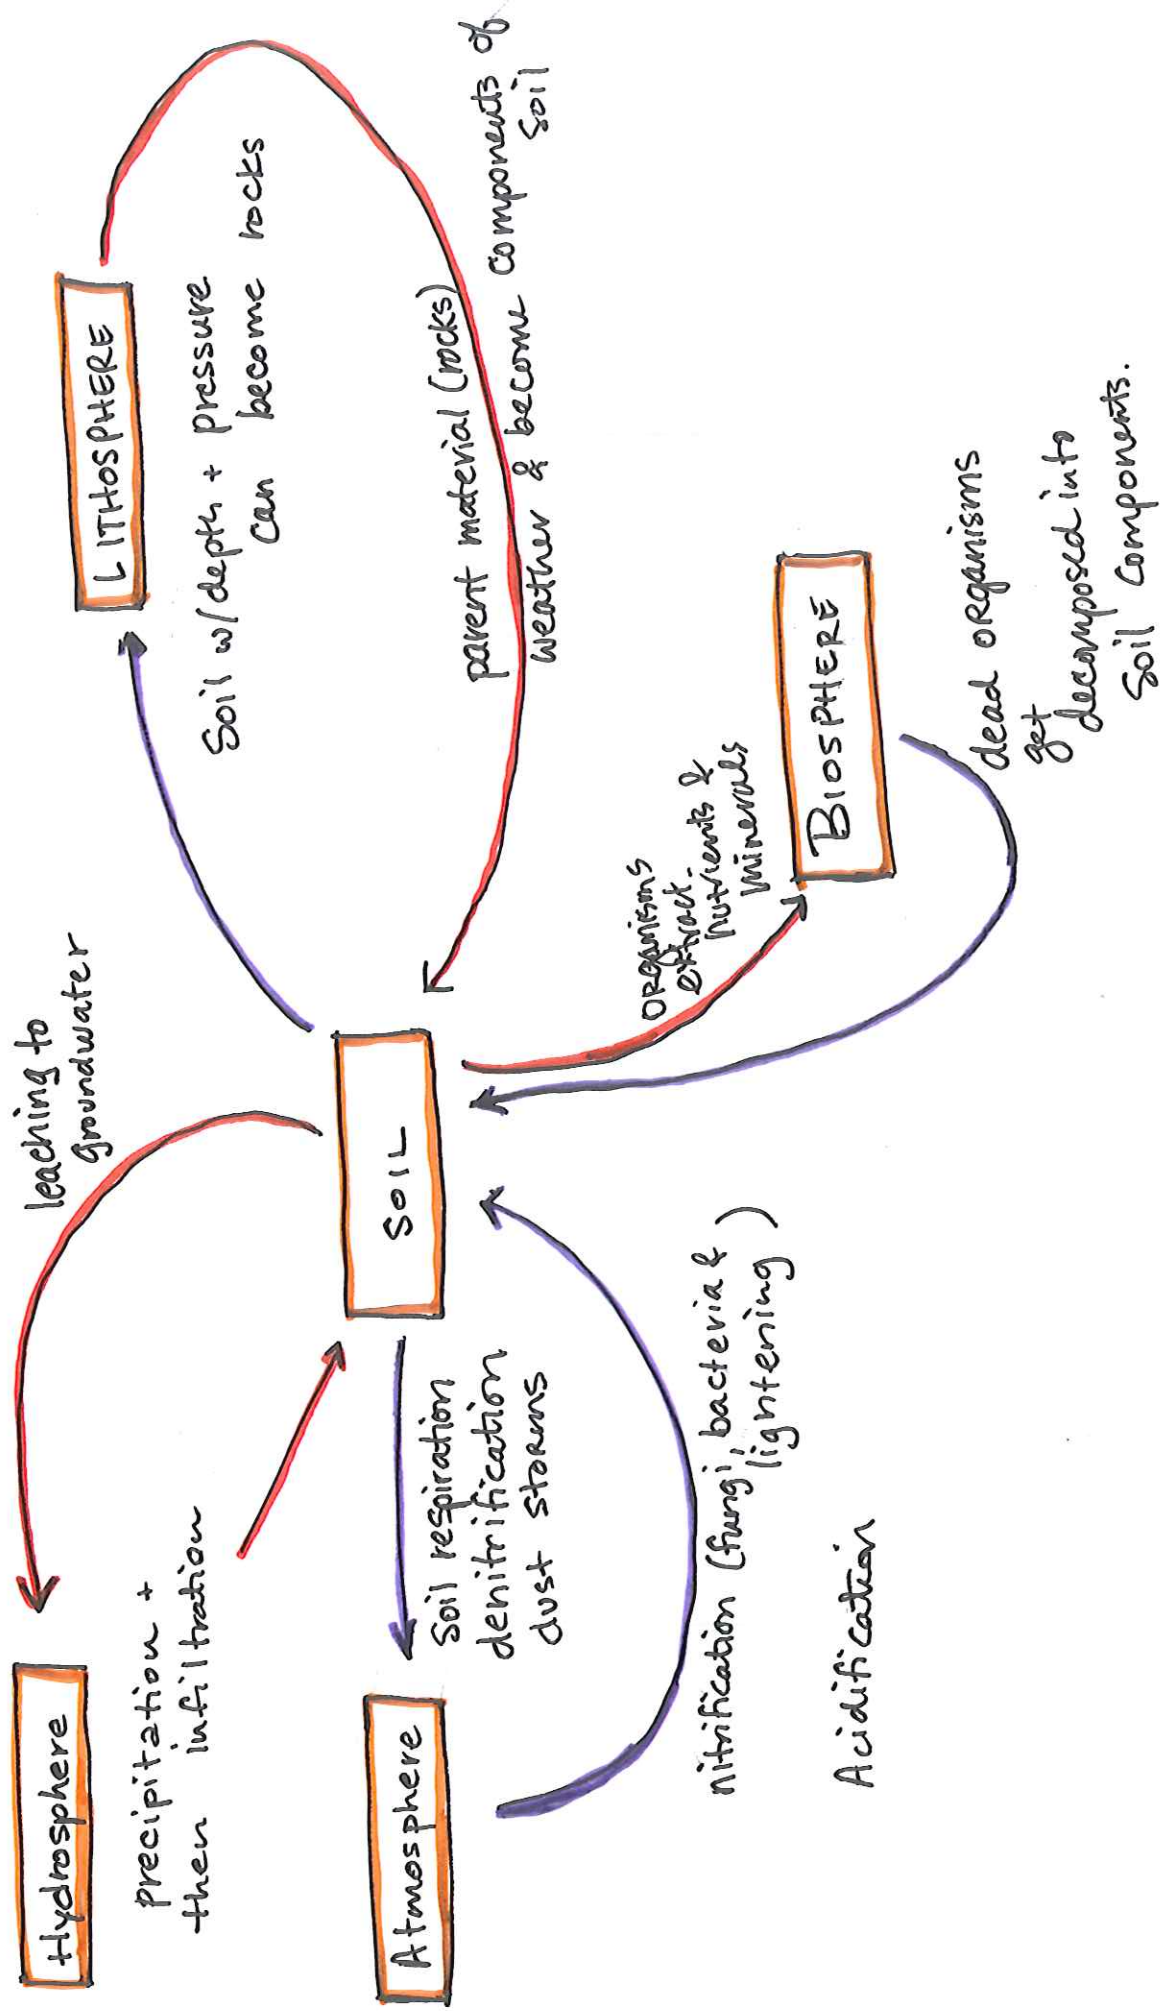 Hydrosphere
precipitation +
then infiltration
leaching to
groundwater
LITHOSPHERE
Soil w/depth + pressure
can become rocks
parent material (rocks)
weather & become components of
soil
SOIL
Atmosphere
Soil respiration
denitrification
dust storms
nitrification (fungi, bacteria &
lightening)
Acidification
organisms
extract
nutrients &
minerals
BIOSPHERE
dead organisms
get
decomposed into
Soil components.